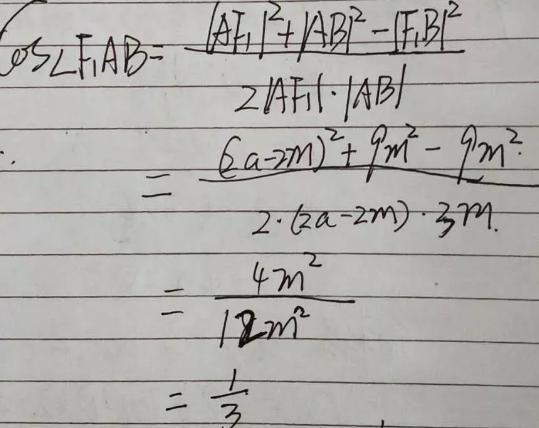 cos∠F₁AB = (|AF₁|² + |AB|² - |F₁B|²) / (2|AF₁|·|AB|)
= ((2a-2m)² + 9m² - 9m²) / (2·(2a-2m)·3m)
= 4m² / 12m²
= 1/3